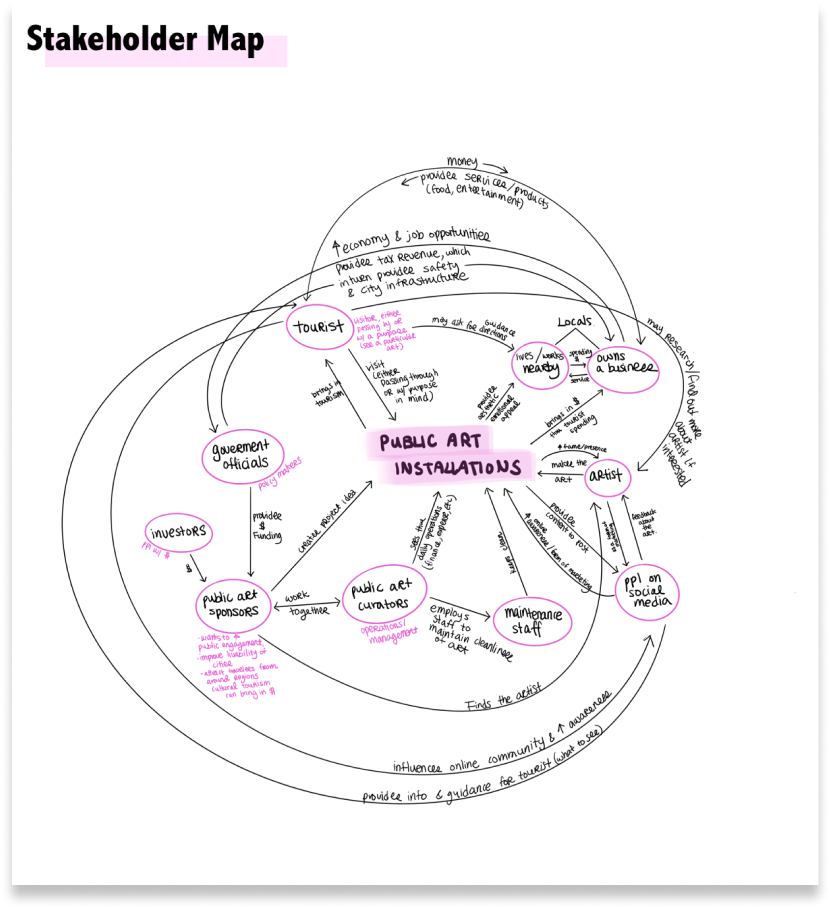 Stakeholder Map
money
provides services/products
(food, entertainment)
↑ economy & job opportunities
provides tax revenue, which
in turn provides safety
& city infrastructure
tourist
visitor, either
passing by or
w/ a purpose
(see a particular
art)
may ask for directions
guidance
Locals
lives/works
nearby
spending
$
service
owns
a business
may research/find out more
about
artist if
interested
brings in
tourism
visit
(either
passing through
or w/ purpose
in mind)
provides
aesthetic
emotional
appeal
brings in $
thru tourist
spending
PUBLIC ART
INSTALLATIONS
government
officials
policy makers
↑ fame/presence
makes the
art
artist
investors
ppl w/ $
$
provides
$
Funding
creates project idea
sees thru
daily operations
(finance, expense, etc)
keeps clean
provides
content to post
online
↑ awareness/form of marketing
feedback
about the
art.
public art
sponsors
- wants to ↑
public engagement,
- improve livability of
cities
- attract travelers from
around regions
cultural tourism
can bring in $
work
together
public art
curators
operations/
management
employs
staff to
maintain cleanliness
of art
maintenance
staff
ppl on
social
media
Finds the artist
influences online community & ↑ awareness
provides info & guidance for tourist (what to see)